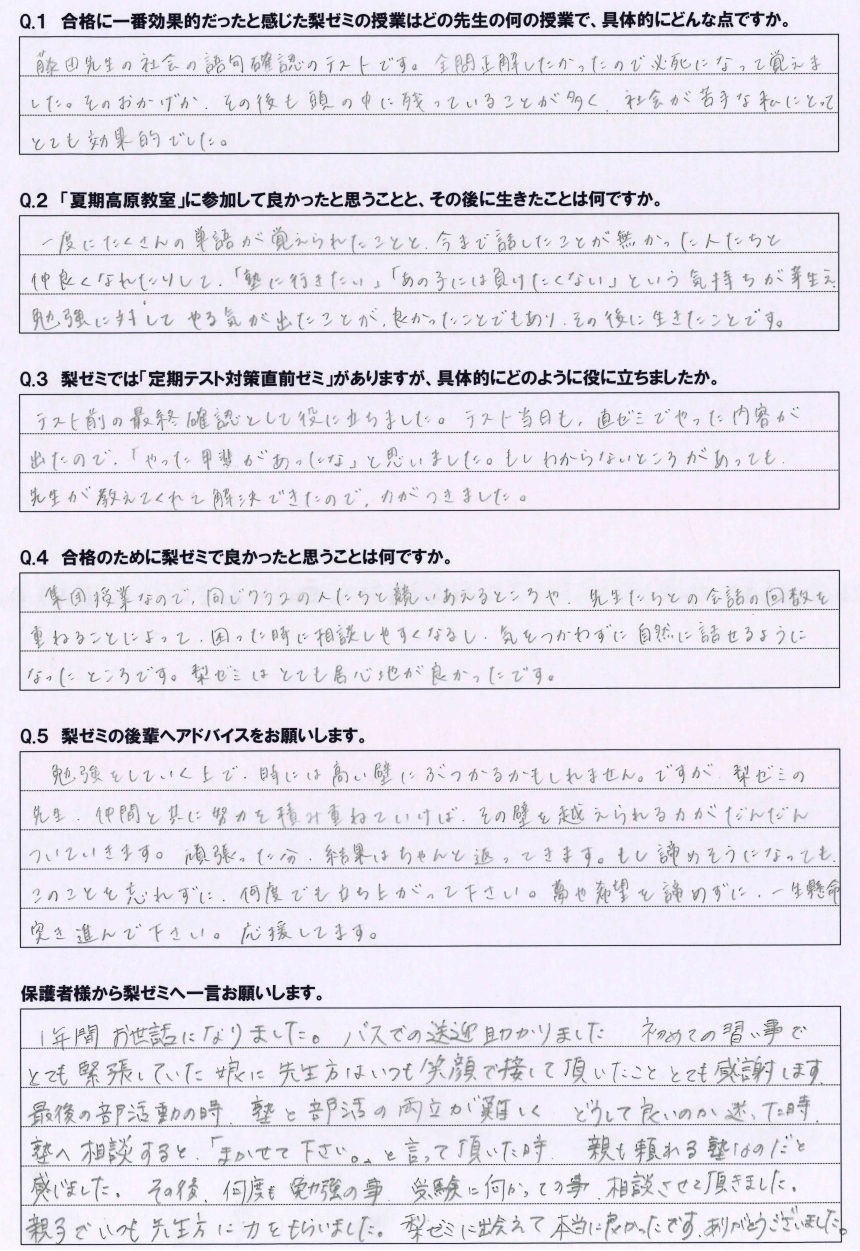 Q.1 合格に一番効果的だったと感じた梨ゼミの授業はどの先生の何の授業で、具体的にどんな点ですか。
藤田先生の社会の語句確認のテストです。全問正解したかったので必死になって覚えま
した。そのおかげか、その後も頭の中に残っていることが多く、社会が苦手な私にとって
とても効果的でした。
Q.2 「夏期高原教室」に参加して良かったと思うことと、その後に生きたことは何ですか。
一度にたくさんの単語が覚えられたことと、今まで話したことが無かった人たちと
仲良くなれたりして、「塾に行きたい」「あの子には負けたくない」という気持ちが芽生え、
勉強に対してやる気が出たことが、良かったことでもあり、その後に生きたことです。
Q.3 梨ゼミでは「定期テスト対策直前ゼミ」がありますが、具体的にどのように役に立ちましたか。
テスト前の最終確認として役に立ちました。テスト当日も、直ゼミでやった内容が
出たので、「やった甲斐があったな」と思いました。もしわからないところがあっても、
先生が教えてくれて解決できたので、力がつきました。
Q.4 合格のために梨ゼミで良かったと思うことは何ですか。
集団授業なので、同じクラスの人たちと競いあえるところや、先生たちとの会話の回数を
重ねることによって、困った時に相談しやすくなるし、気をつかわずに自然に話せるように
なったところです。梨ゼミはとても居心地が良かったです。
Q.5 梨ゼミの後輩へアドバイスをお願いします。
勉強をしていく上で、時には高い壁にぶつかるかもしれません。ですが、梨ゼミの
先生、仲間と共に努力を積み重ねていけば、その壁を越えられる力がだんだん
ついていきます。頑張った分、結果はちゃんと返ってきます。もし諦めそうになっても、
このことを忘れずに、何度でも立ち上がって下さい。夢や希望を諦めずに、一生懸命
突き進んで下さい。応援してます。
保護者様から梨ゼミへ一言お願いします。
1年間お世話になりました。バスでの送迎助かりました 初めての習い事で
とても緊張していた娘に先生方はいつも笑顔で接して頂いたこととても感謝します
最後の部活動の時、塾と部活の両立が難しく どうして良いのか迷った時、
塾へ相談すると、「まかせて下さい。」と言って頂いた時、親も頼れる塾なのだと
感じました。その後、何度も勉強の事、受験に向かっての事、相談させて頂きました。
親子でいつも先生方に力をもらいました。梨ゼミに出会えて本当に良かったです。ありがとうございました。